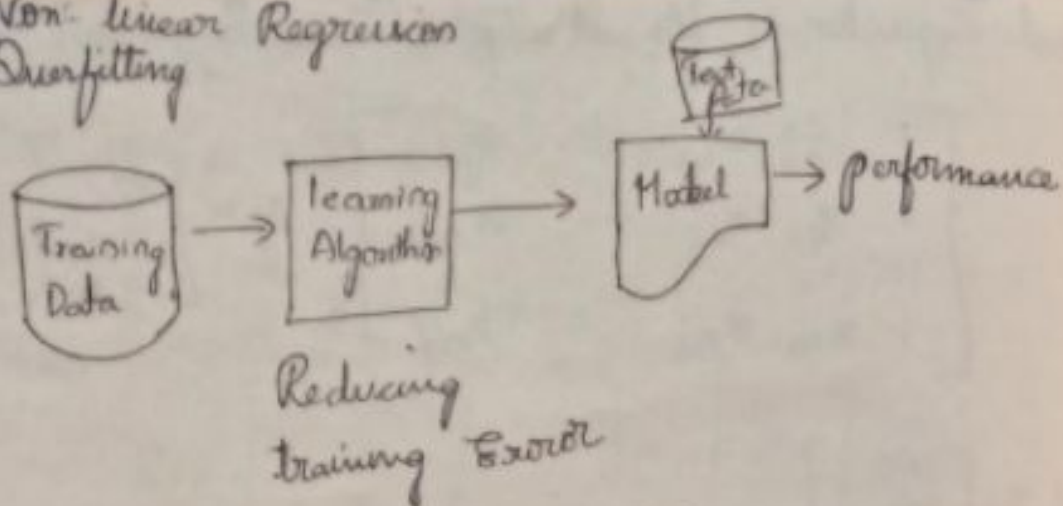 Non-linear Regression
Overfitting
Test
Data
Training
Data
learning
Algorithm
Model
performance
Reducing
training Error